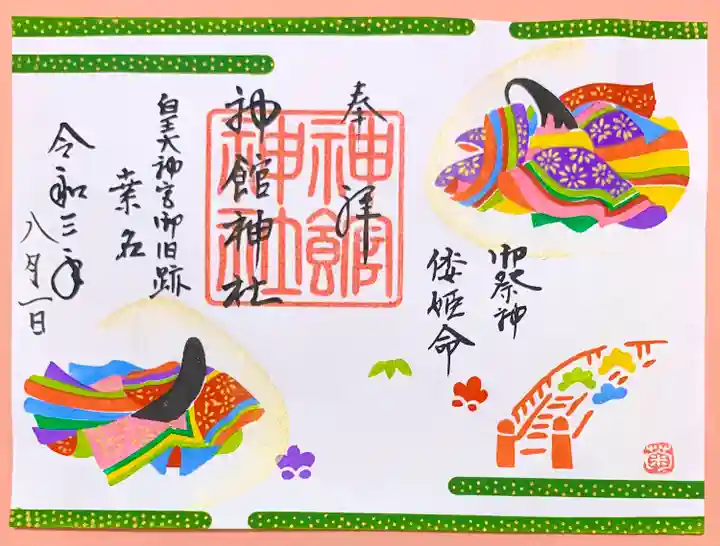 御祭神
倭姫命
奉拝
神館神社
神館神社
皇大神宮御旧跡
桑名
令和三年
八月一日
菊